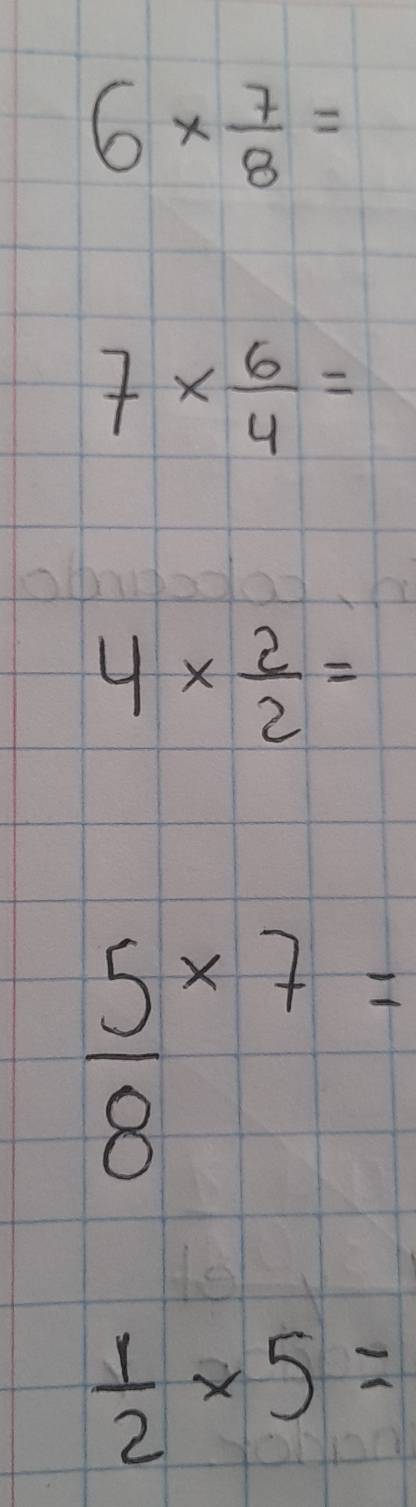 6 × 7/8 =
7 × 6/4 =
4 × 2/2 =
5/8 × 7 =
1/2 × 5 =